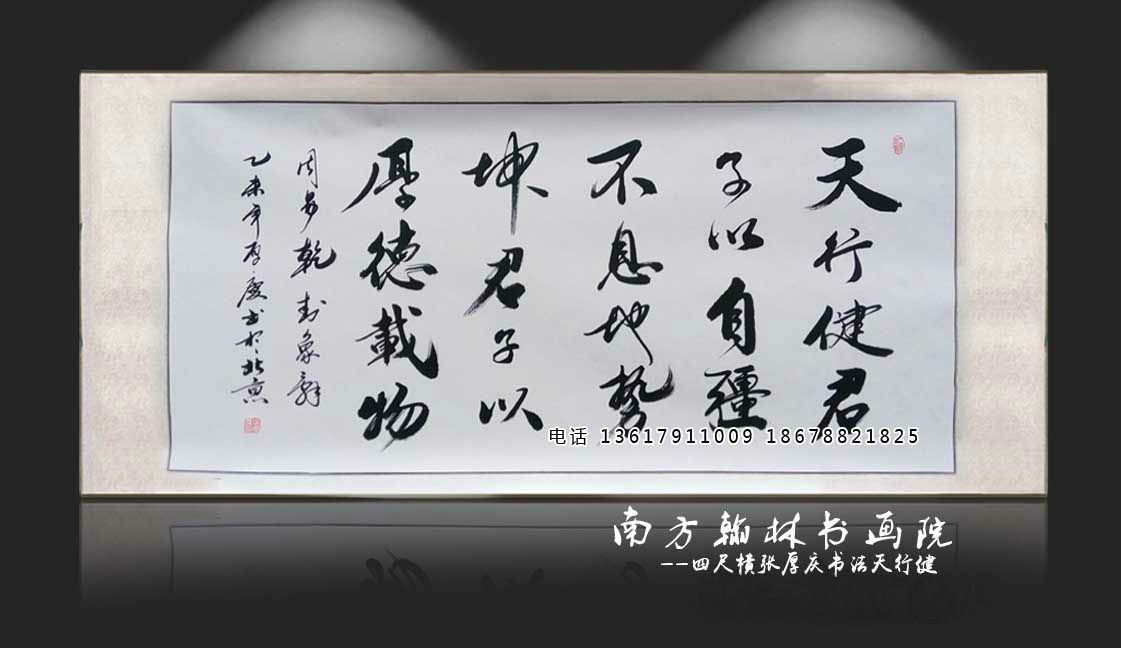 天行健君
子以自疆
不息地势
坤君子以
厚德載物
周易乾卦象辞
乙未年厚庆书於北京
电话 13617911009 18678821825
南方翰林书画院
--四尺横张厚庆书法天行健